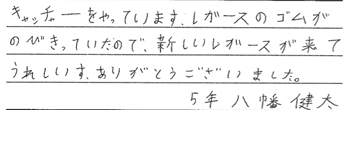 キャッチャーをやっています。レガースのゴムが
のびきっていたので、新しいレガースが来て
うれしいす。ありがとうございました。
5年 八幡健太